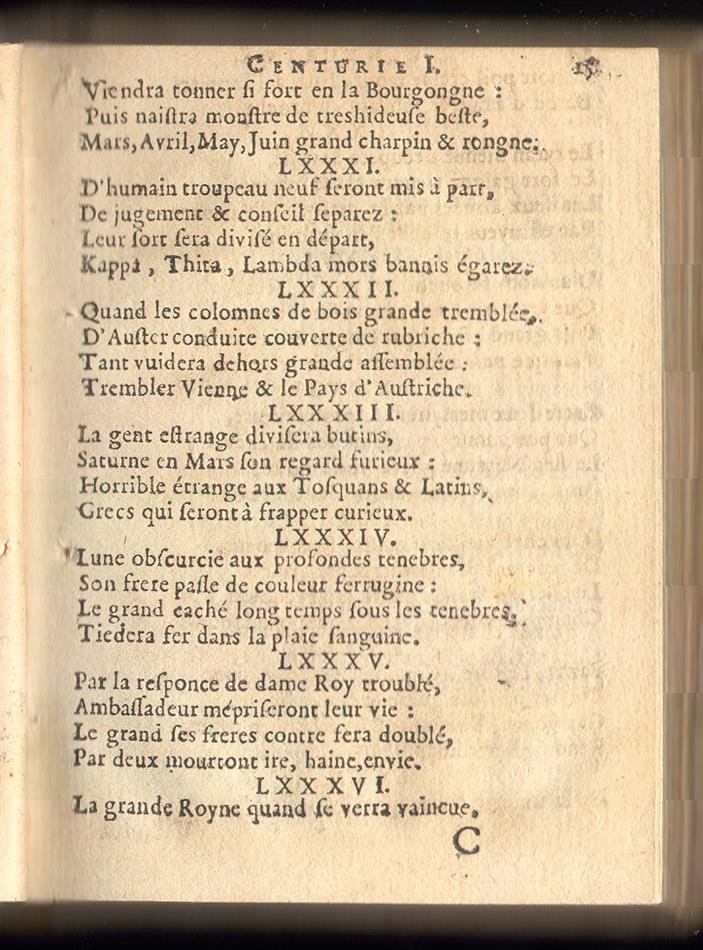 CENTURIE I. 15
Viendra tonner ſi fort en la Bourgongne :
Puis naiſtra monſtre de treshideuſe beſte,
Mars, Avril, May, Juin grand charpin & rongne.
LXXXI.
D'humain troupeau neuf ſeront mis à part,
De jugement & conſeil ſeparez :
Leur ſort ſera diviſé en départ,
Kappa, Thita, Lambda mors bannis égarez.
LXXXII.
Quand les colomnes de bois grande tremblée,
D'Auſter conduite couverte de rubriche :
Tant vuidera dehors grande aſſemblée :
Trembler Vienne & le Pays d'Auſtriche.
LXXXIII.
La gent eſtrange diviſera butins,
Saturne en Mars ſon regard furieux :
Horrible étrange aux Toſquans & Latins,
Grecs qui ſeront à frapper curieux.
LXXXIV.
Lune obſcurcie aux profondes tenebres,
Son frere paſle de couleur ferrugine :
Le grand caché long temps ſous les tenebres,
Tiedera fer dans la plaie ſanguine.
LXXXV.
Par la reſponce de dame Roy troublé,
Ambaſſadeur mépriſeront leur vie :
Le grand ſes freres contre fera doublé,
Par deux mourront ire, haine, envie.
LXXXVI.
La grande Royne quand ſe verra vaincue,
C